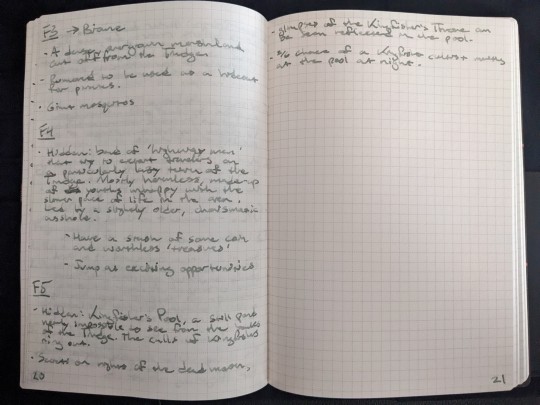 F3 → Biome
· A dense, overgrown marshland
cut off from the bridge.
· Rumored to be used as a hideout
for pirates.
· Giant mosquitos
F4
· Hidden: band of 'highway men'
that try to extort travelers on
particularly busy turns of the
Mostly harmless, made up
of youths unhappy with the
slower pace of life in the area,
led by a slightly older, charismatic
asshole.
- Have a stash of some coin
and worthless 'treasures'
- Jump at exciting opportunities
F5
· Hidden: Kingfisher's Pool, a still pool
nearly impossible to see from the
of the The calls of kingfishers
ring out.
· on nights of the dead moon,
20
glimpses of the Kingfisher's Throne can
be seen reflected in the pool.
· chance of a Kingfisher cultist
at the pool at night.
21